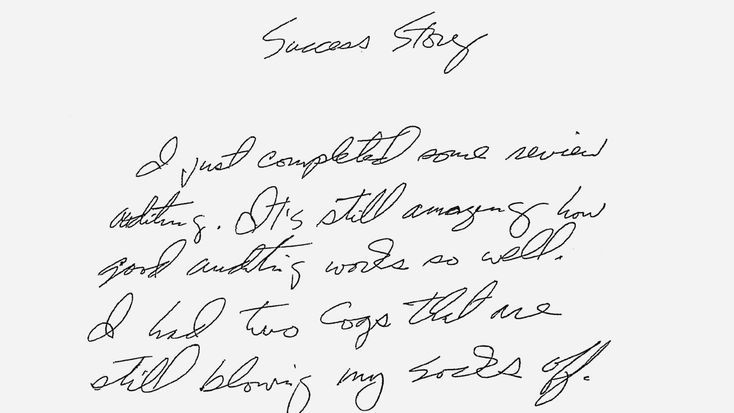 Success Story
I just completed some review
auditing. It's still amazing how
good auditing works so well.
I had two Cogs that are
still blowing my socks off.